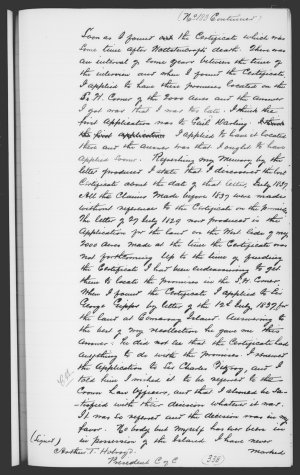 (No 1113 Continued)
Soon as I found out the Certificate which was
some time after Wattstenborough death. There was
an interval of some years between the time of
the interview and when I found the Certificate
I applied to have these promises located on the
S. W. Corner of the 2000 acres and the answer
I got was that I was to late. I think the
first Application was to Genl Darling I think
the first application I applied to have it located
there and the answer was that I ought to have
applied sooner. Refreshing my memory by the
letter produced I state that I discovered the lost
Certificate about the date of that letter, July 1837
All the Claims Made before 1837 were made
without reference to the Certificate or the promise
The letter of 27 July 1829 now produced is the
Application for the land on the West side of my
2000 acres made at the time the Certificate was
not forthcoming. Up to the time of finding
the Certificate I had been endeavouring to get
them to locate the Promises in the S. W. Corner.
When I found the Certificate I applied to Sir
George Gipps by letter of the 12th July 1837 for
the land at Answering to
the best of my recollection he gave me this
Answer. He did not see that the Certificate had
anything to do with the promises. I renewed
the Application to Sir Charles Fitzroy, and I
told him I wished it to be referred to the
Crown Law Officers, and that I should be Sa-
tisfied with their decision whatever it was.
It was so referred and the decision was in my
favor. No body but myself has ever been in
in possession of the Island I have never
(Signed) marked
Arthur T. Holroyd
President C of C (335)